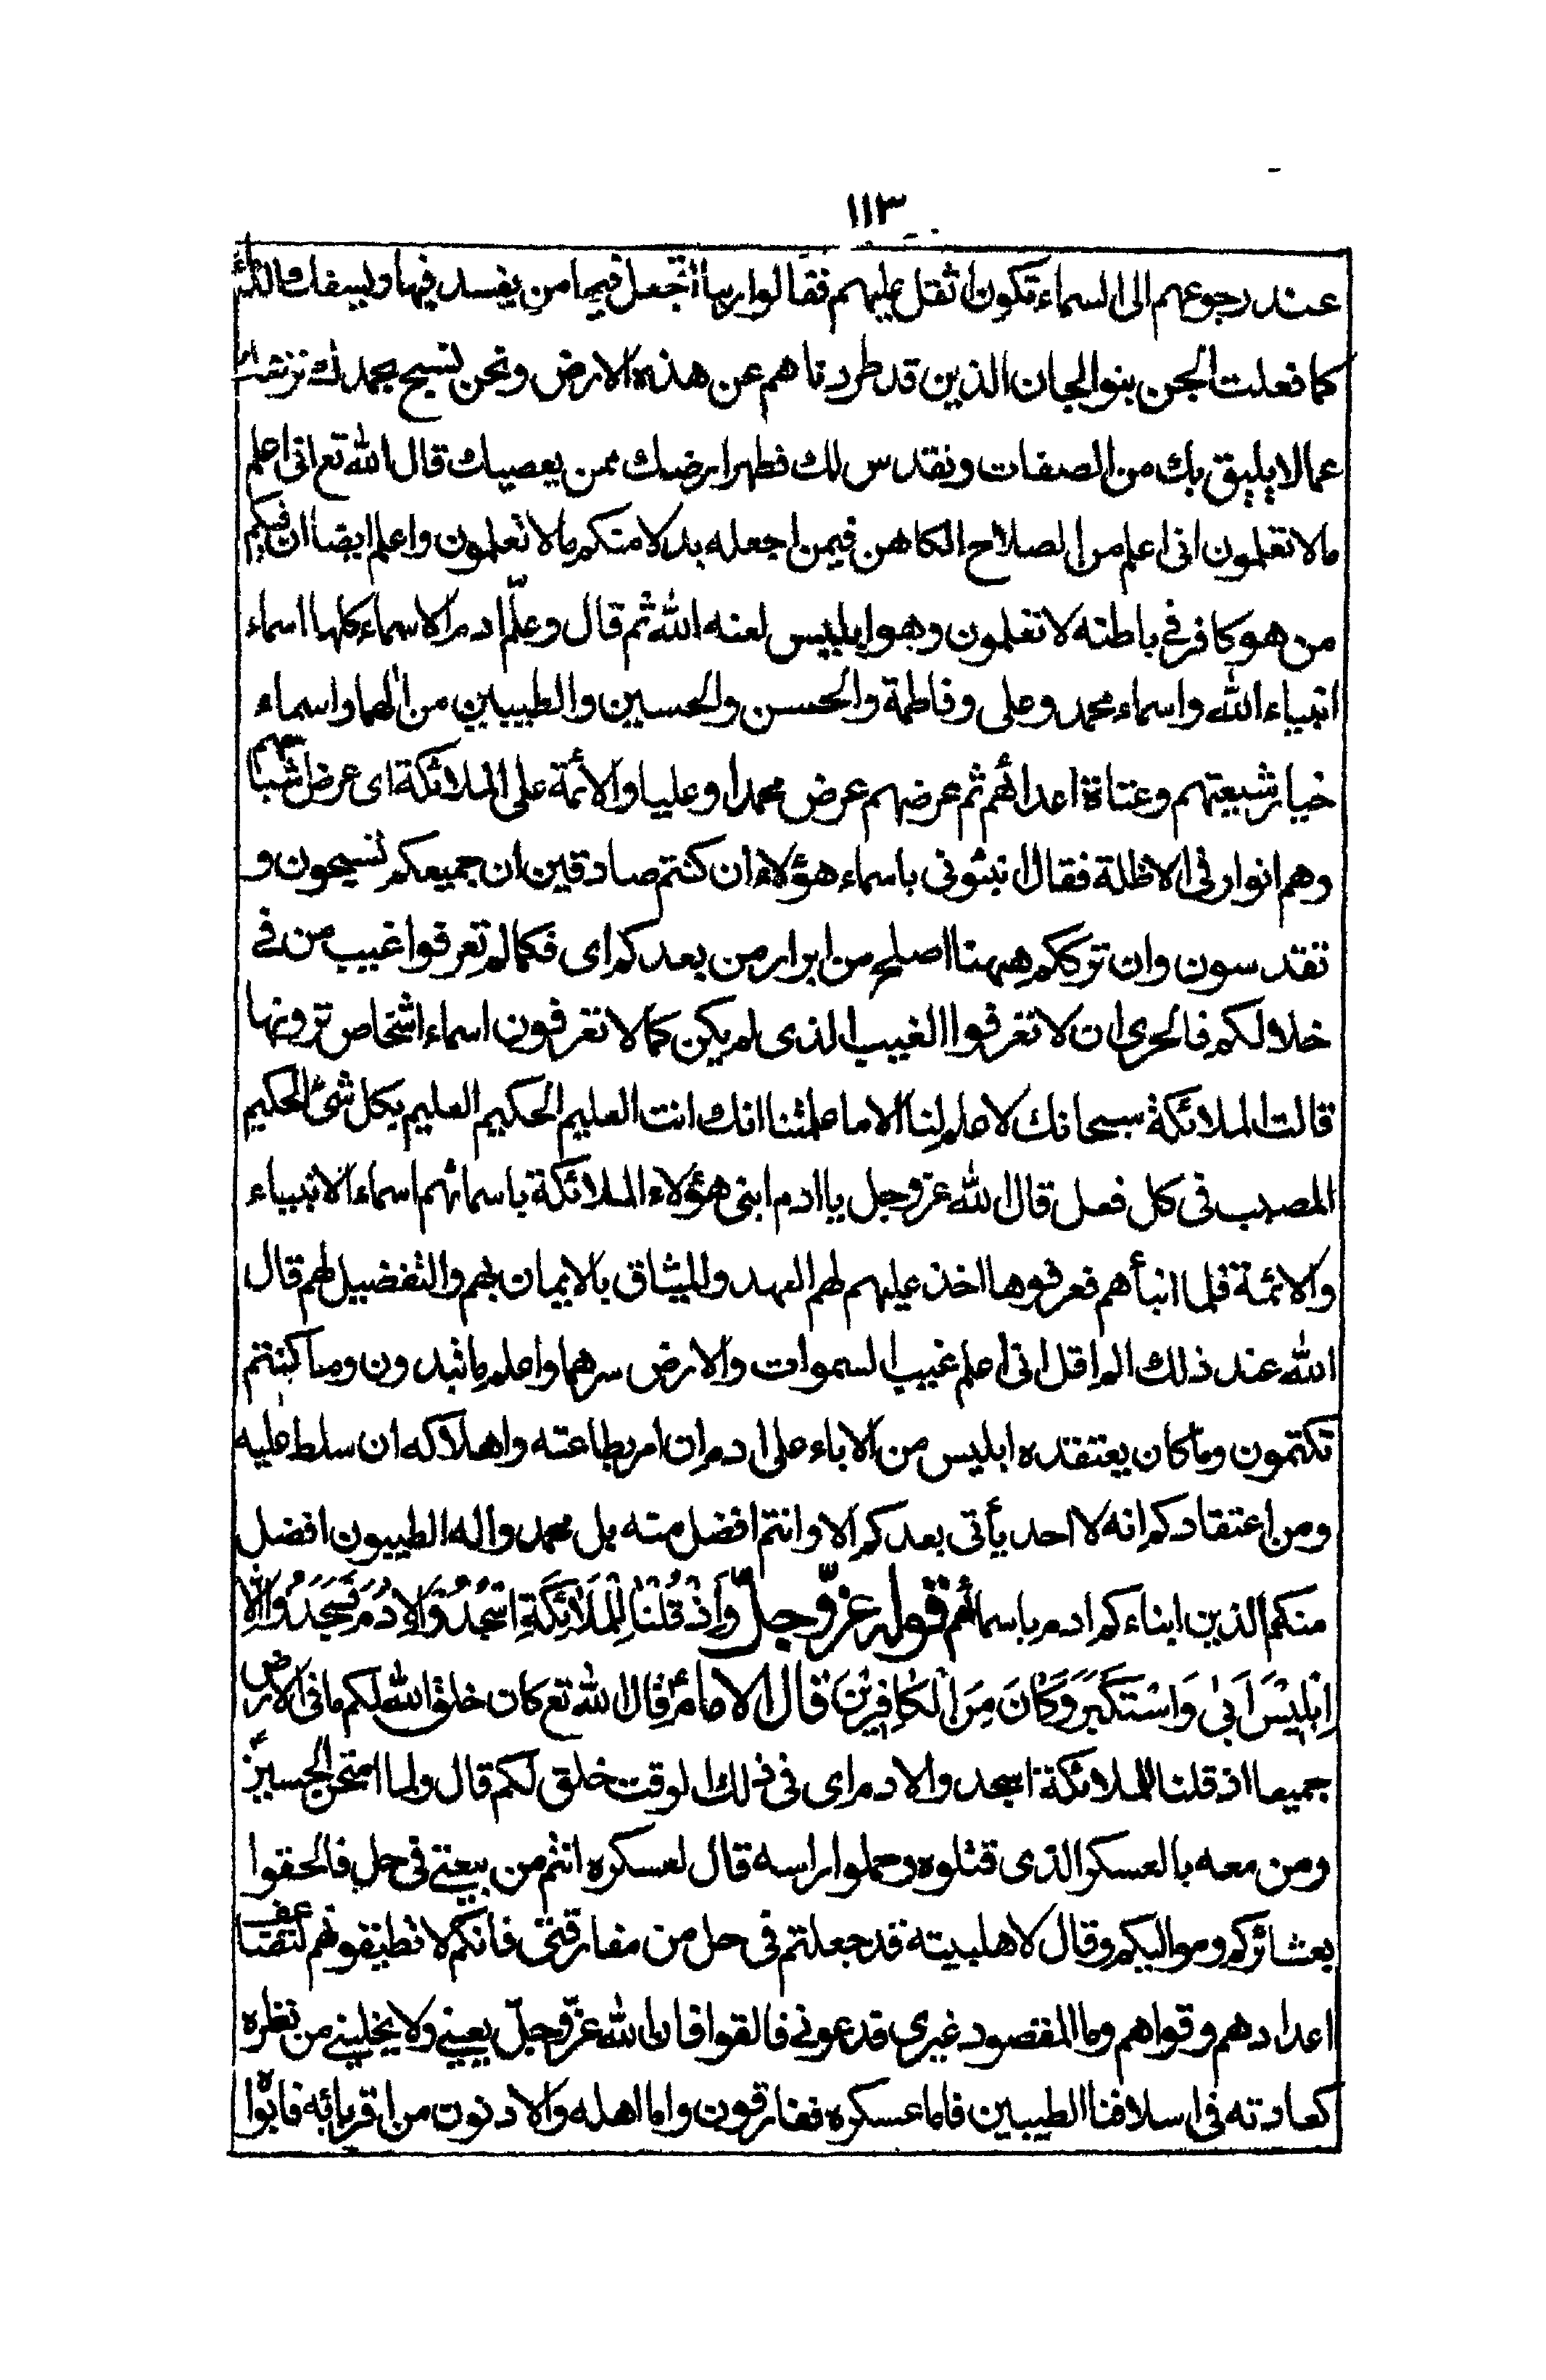 ١١٣
عند رجوعهم الى السماء تكون اثقل عليهم فقالوا ربنا اتجعل فيها من يفسد فيها ويسفك الدماء
كما فعلت الجن بنو الجان الذين قد طردناهم عن هذه الارض ونحن نسبح بحمدك ننزهك
عما لا يليق بك من الصفات ونقدس لك نطهر ارضك ممن يعصيك قال الله تع انى اعلم
ما لا تعلمون انى اعلم من الصلاح الكاهن فيمن اجعله بدلا منكم ما لا تعلمون واعلم ايضا ان فيكم
من هو كافر في باطنه لا تعلمون وهو ابليس لعنه الله ثم قال وعلّم ادم الاسماء كلها اسماء
انبياء الله واسماء محمد وعلى وفاطمة والحسن والحسين والطيبين من الهما واسماء
خيار شيعتهم وعتاة اعدائهم ثم عرضهم عرض محمدا وعليا والائمة على الملائكة اى عرض اشباحهم
وهم انوار فى الاظلة فقال انبئونى باسماء هؤلاء ان كنتم صادقين ان جميعكم تسبحون و
تقدسون وان ترككم ههنا اصلح من ابرار من بعدكم اى فكما لم تعرفوا غيب من في
خلالكم فالحرى ان لا تعرفوا الغيب الذى لم يكن كما لا تعرفون اسماء اشخاص ترونها
قالت الملائكة سبحانك لا علم لنا الا ما علمتنا انك انت العليم الحكيم العليم بكل شئ الحكيم
المصيب فى كل فعل قال الله عز وجل يا ادم انبئ هؤلاء الملائكة باسمائهم اسماء الانبياء
والائمة فلما انبأهم فعرفوها اخذ عليهم لهم العهد والميثاق بالايمان بهم والتفضيل لهم قال
الله عند ذلك الم اقل انى اعلم غيب السموات والارض سرهما واعلم ما تبدون وما كنتم
تكتمون وما كان يعتقده ابليس من الاباء على ادم ان امر بطاعته واهلاكه ان سلط عليه
ومن اعتقادكم انه لا احد يأتى بعدكم الا وانتم افضل منه بل محمد واله الطيبون افضل
منكم الذين انباءكم ادم باسمائهم قوله عزّ وجلّ وَاِذْ قُلْنَا لِلْمَلَائِكَةِ اسْجُدُوا لِاٰدَمَ فَسَجَدُوا اِلَّا
اِبْلِيْسَ اَبىٰ وَاسْتَكْبَرَ وَكَانَ مِنَ الْكَافِرِيْنَ قال الامامؑ قال الله تع كان خلق الله لكم ما فى الارض
جميعا اذ قلنا للملائكة اسجدوا لادم اى فى ذلك الوقت خلق لكم قال ولما امتحن الحسينؑ
ومن معه بالعسكر الذى قتلوه وحملوا راسه قال لعسكره انتم من بيعتي فى حل فالحقوا
بعشائركم ومواليكم وقال لاهلبيته قد جعلتكم فى حل من مفارقتى فانكم لا تطيقونهم لتضاعف
اعدادهم وقواهم وما المقصود غيرى فدعونى والقوم فان الله عزّ وجلّ يعينني ولا يخليني من نظره
كعادته فى اسلافنا الطيبين فاما عسكره ففارقوه واما اهله والادنون من اقربائه فابوا